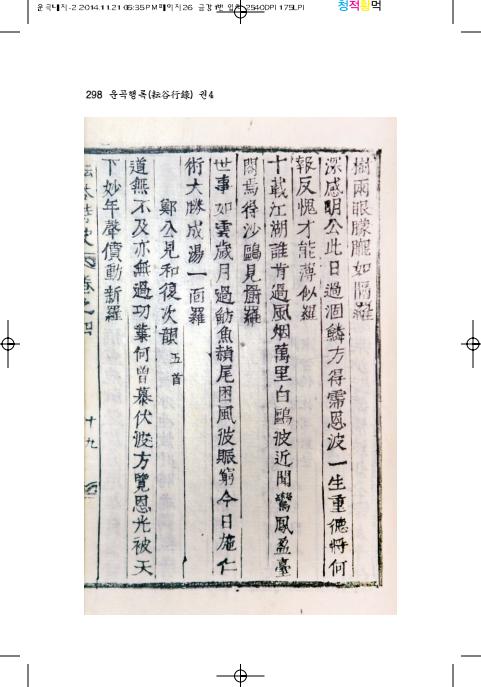 운곡내지-2 2014.11.21 05:35 PM 페이지26 금강1번 2540DPI 175LPI
청적황먹
298 운곡행록(耘谷行錄) 권4
樹兩眼朦朧如隔羅
深感明公此日過涸鱗方得霈恩波一生重德將何
報反愧才能薄似羅
十載江湖誰肯過風烟萬里白鷗波近聞鸞鳳盈臺
閣焉得沙鷗見罻羅
世事如雲歲月過魴魚赬尾困風波賑窮今日施仁
術大勝成湯一面羅
鄭公見和復次韻 五首
道無不及亦無過功業何曾慕伏波方覽恩光被天
下妙年聲價動新羅
卷之四
十九